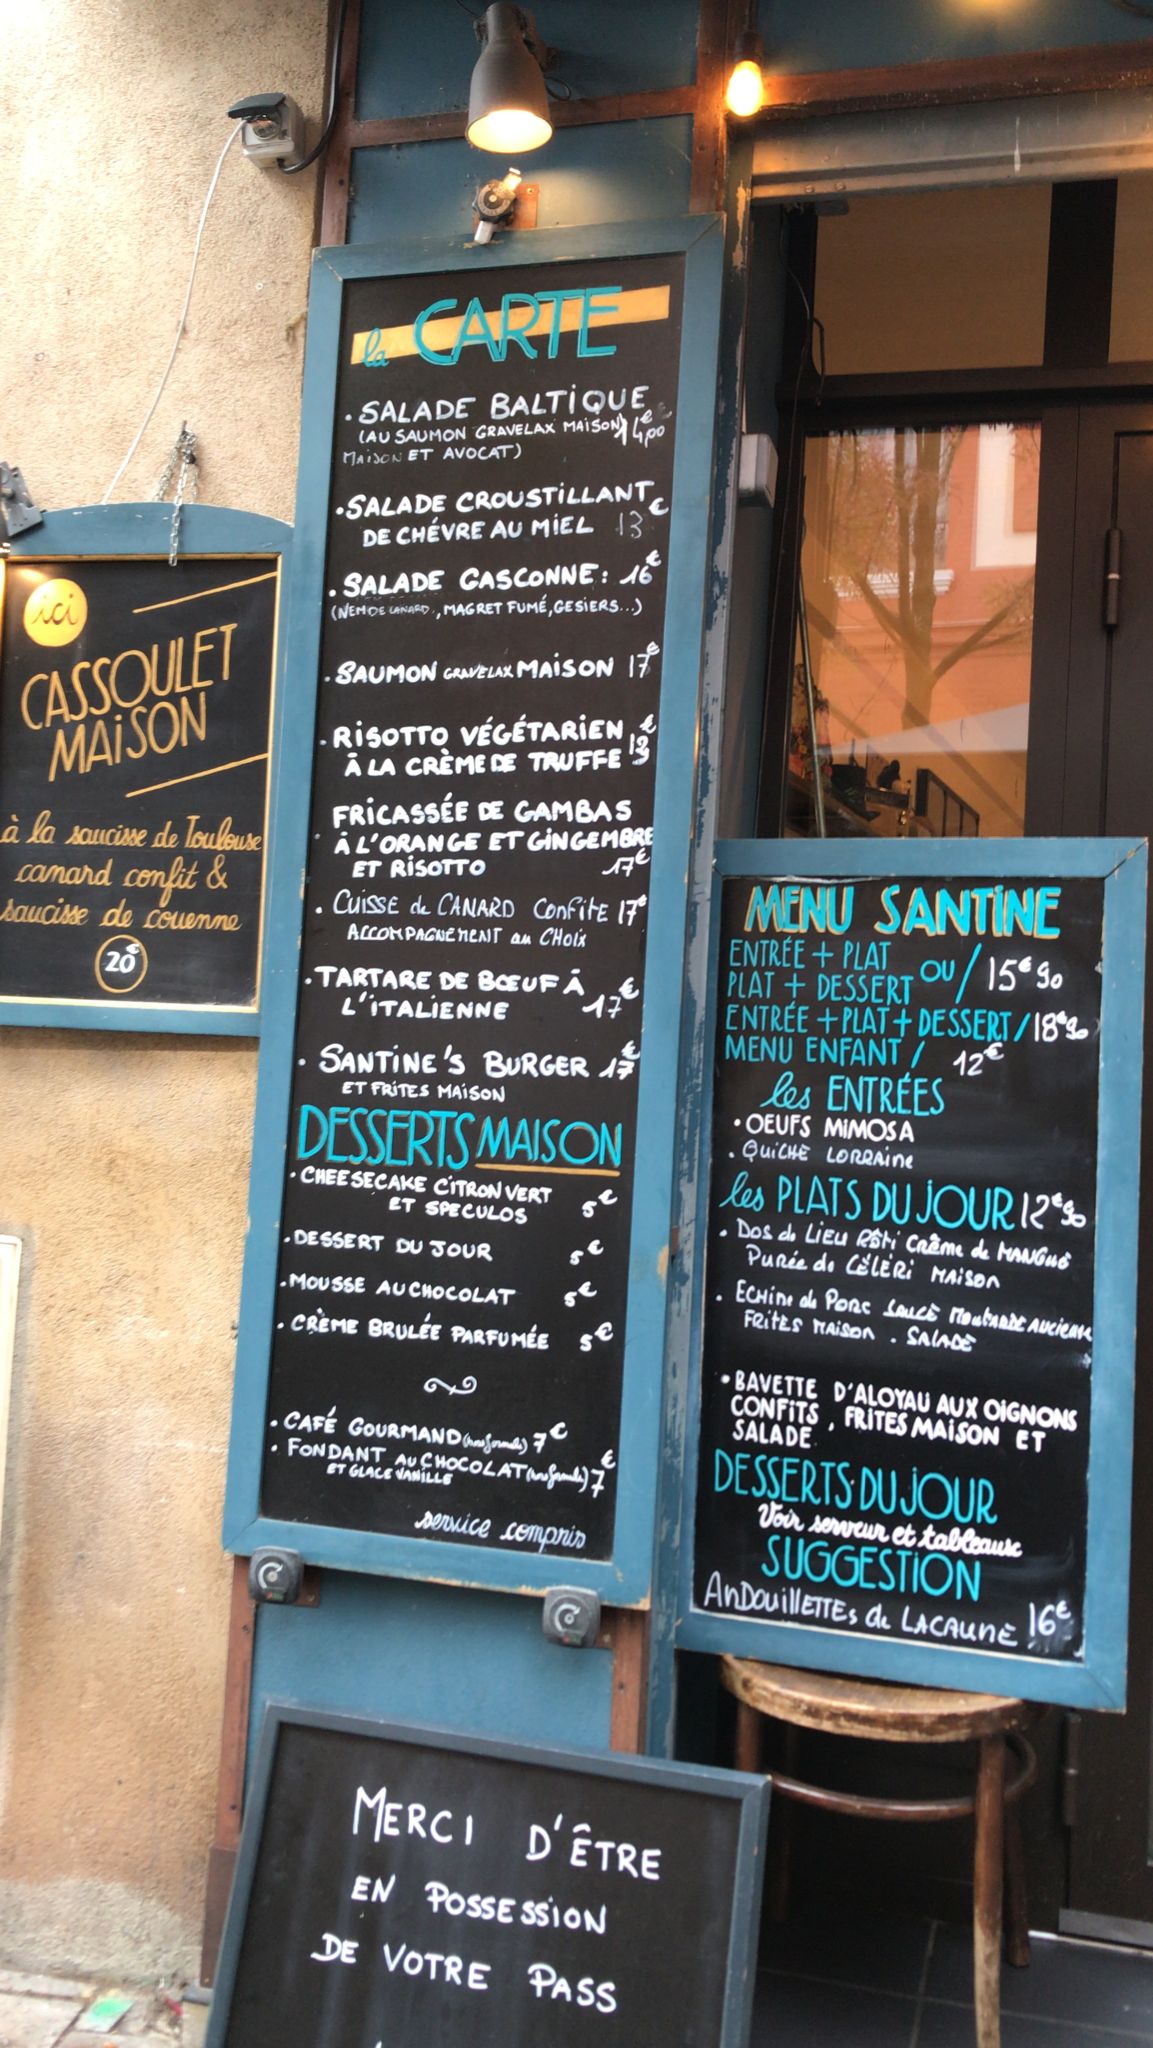 ici
CASSOULET
MAISON
à la saucisse de Toulouse
canard confit &
saucisse de couenne
20€
la CARTE
. SALADE BALTIQUE
(AU SAUMON GRAVELAX MAISON 14,00€
MAISON ET AVOCAT)
. SALADE CROUSTILLANT
DE CHÉVRE AU MIEL 13€
. SALADE GASCONNE : 16€
(NEM DE CANARD, MAGRET FUMÉ, GESIERS...)
. SAUMON GRAVELAX MAISON 17€
. RISOTTO VÉGÉTARIEN
À LA CRÈME DE TRUFFE €
. FRICASSÉE DE GAMBAS
À L'ORANGE ET GINGEMBRE
ET RISOTTO 17€
. CUISSE de CANARD CONFITE 17€
ACCOMPAGNEMENT au CHOIX
. TARTARE DE BŒUF À
L'ITALIENNE 17€
. SANTINE'S BURGER 17€
ET FRITES MAISON
DESSERTS MAISON
. CHEESECAKE CITRON VERT
ET SPECULOS 5€
. DESSERT DU JOUR 5€
. MOUSSE AU CHOCOLAT 5€
. CRÈME BRULÉE PARFUMÉE 5€
. CAFÉ GOURMAND (hors formule) 7€
. FONDANT AU CHOCOLAT (hors formule) 7€
ET GLACE VANILLE
service compris
MENU SANTINE
ENTRÉE + PLAT
OU / 15€90
PLAT + DESSERT
ENTRÉE + PLAT + DESSERT / 18€90
MENU ENFANT / 12€
les ENTRÉES
. OEUFS MIMOSA
. QUICHE LORRAINE
les PLATS DU JOUR 12€90
. DOS de LIEU RÔTI CRÊME de MANGUE
PURÉE de CÉLÉRI MAISON
. ECHINE de PORC SAUCE MOUTARDE ANCIENNE
FRITES MAISON . SALADE
. BAVETTE D'ALOYAU AUX OIGNONS
CONFITS, FRITES MAISON ET
SALADE
DESSERTS DU JOUR
Voir serveur et tableaux
SUGGESTION
ANDOUILLETTES de LACAUNE 16€
MERCI D'ÊTRE
EN POSSESSION
DE VOTRE PASS